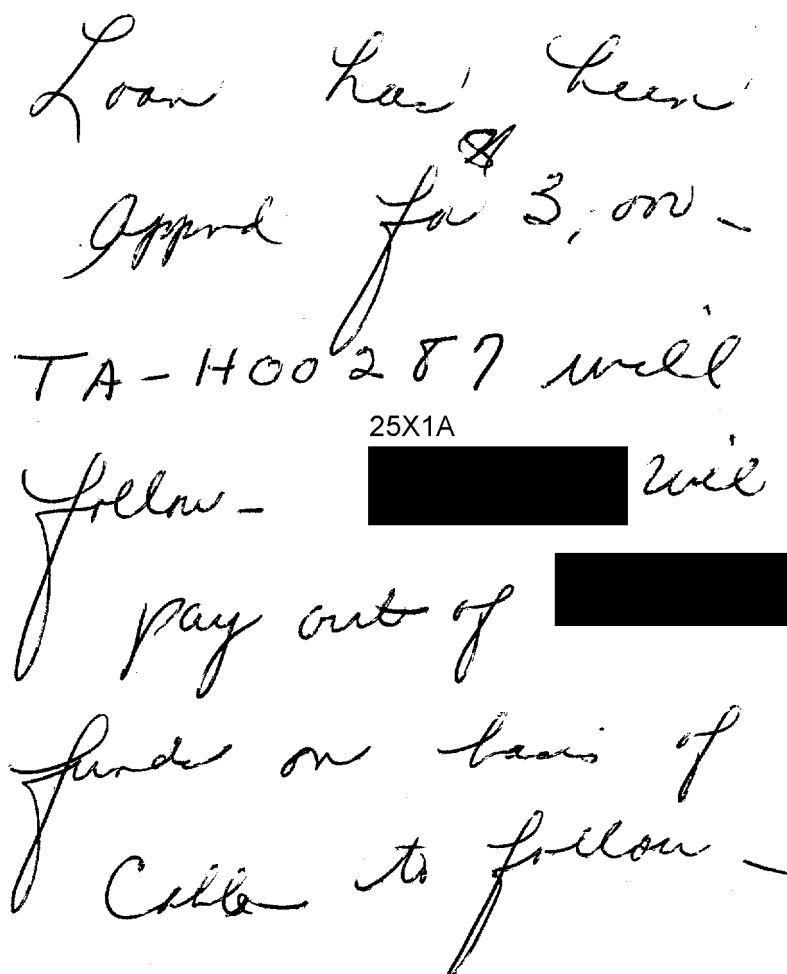 Loan has been
Apprvd for $ 3,000 -
TA-H00287 will
25X1A
follow - will
pay out of
funds on basis of
Cable to follow -